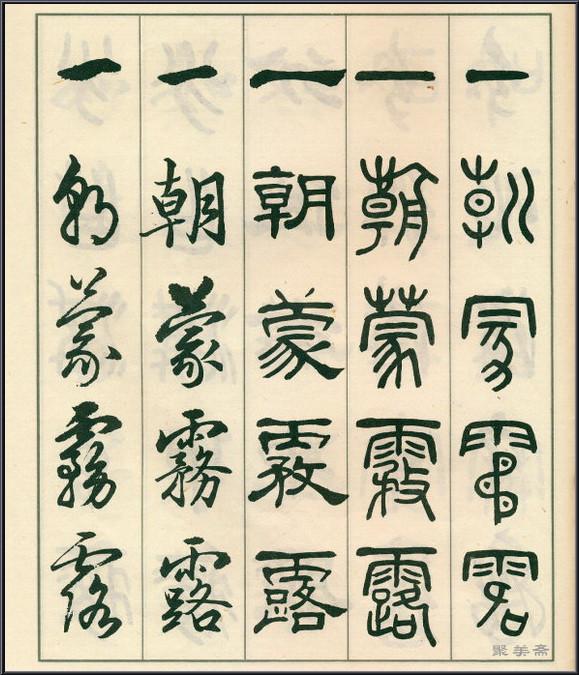 一朝蒙霧露
一朝蒙霧露
一朝蒙霧露
一朝蒙霧露
一朝蒙霧露
聚美斋